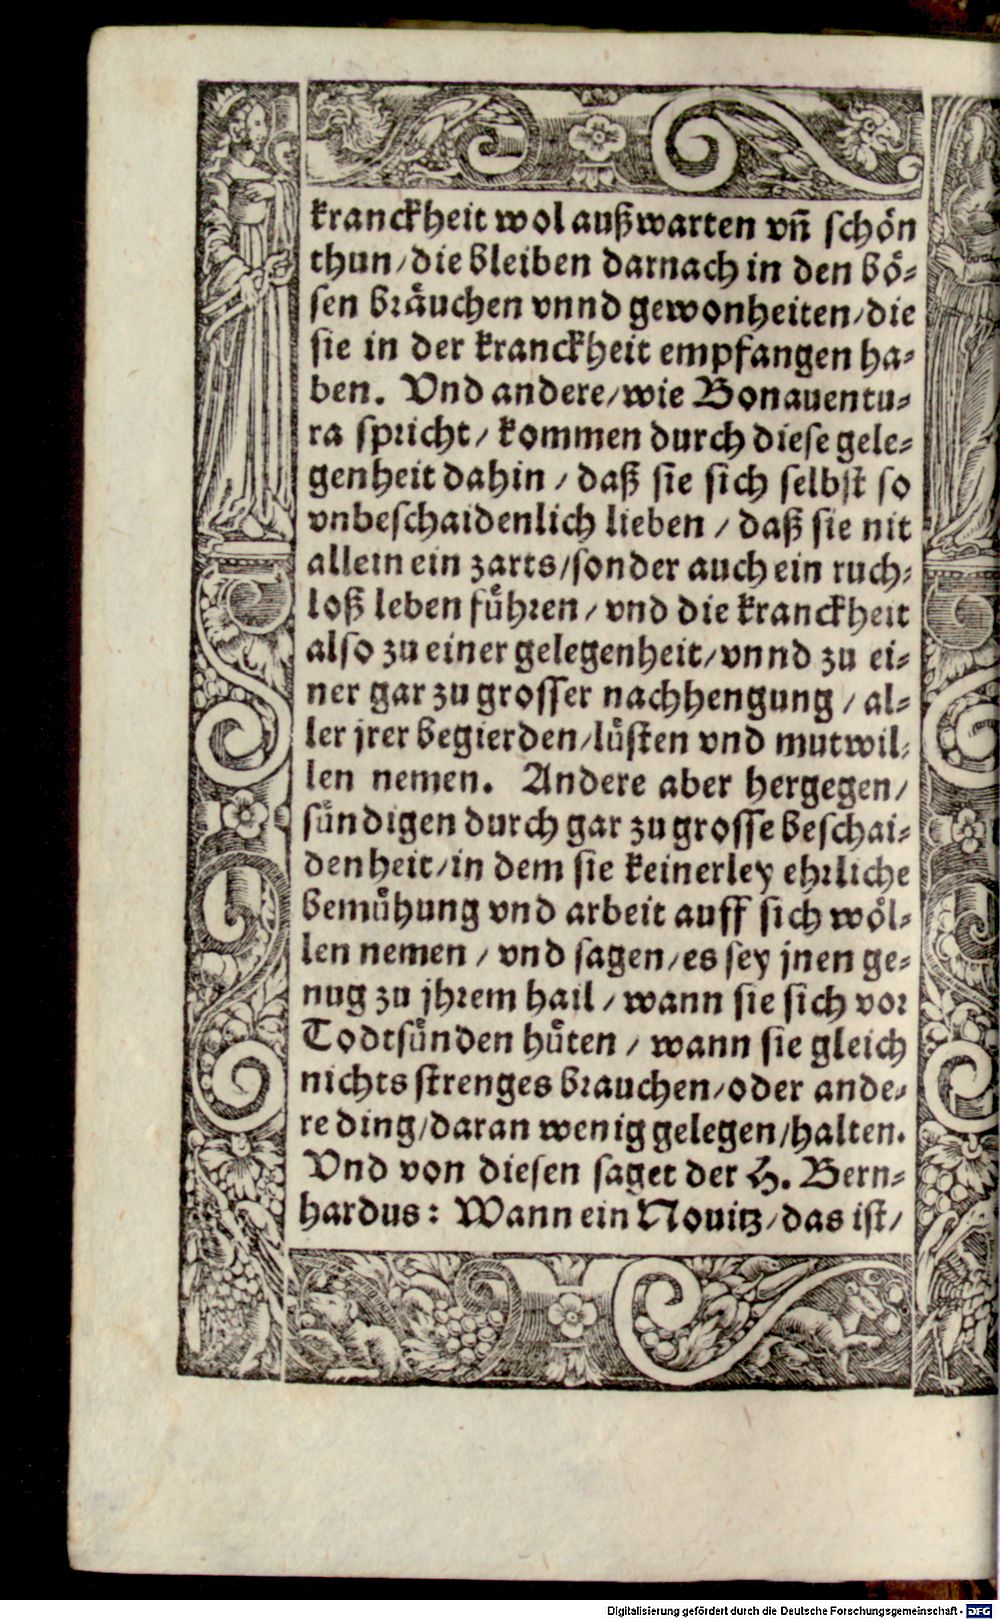 kranckheit wol außwarten vñ schön
thun/die bleiben darnach in den bö-
sen bräuchen vnnd gewonheiten/die
sie in der kranckheit empfangen ha-
ben. Vnd andere/wie Bonauentu-
ra spricht/ kommen durch diese gele-
genheit dahin / daß sie sich selbst so
vnbeschaidenlich lieben / daß sie nit
allein ein zarts/sonder auch ein ruch-
loß leben führen/ vnd die kranckheit
also zu einer gelegenheit/vnnd zu ei-
ner gar zu grosser nachhengung / al-
ler jrer begierden/lüsten vnd mutwil-
len nemen. Andere aber hergegen/
sündigen durch gar zu grosse beschai-
denheit/in dem sie keinerley ehrliche
bemühung vnd arbeit auff sich wöl-
len nemen / vnd sagen/es sey jnen ge-
nug zu jhrem hail / wann sie sich vor
Todtsünden hüten / wann sie gleich
nichts strenges brauchen/oder ande-
re ding/daran wenig gelegen/halten.
Vnd von diesen saget der H. Bern-
hardus: Wann ein Nouitz/das ist/
Digitalisierung gefördert durch die Deutsche Forschungsgemeinschaft - DFG